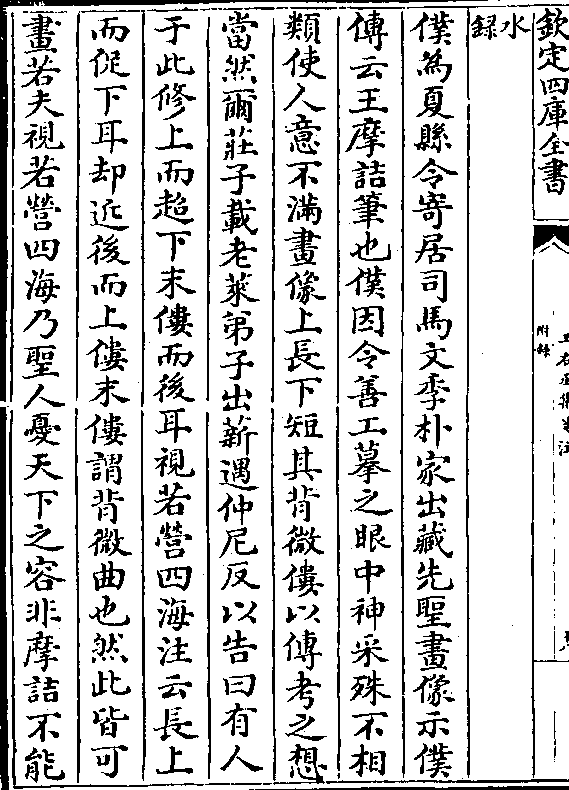 欽定四庫全書
王右丞集箋注
附錄
水
録
僕為夏縣令寄居司馬文季朴家出藏先聖畫像示僕
傳云王摩詰筆也僕因令善工摹之眼中神采殊不相
類使人意不滿畫像上長下短其背微僂以傳考之想
當然爾莊子載老萊弟子出薪遇仲尼反以告曰有人
于此修上而趨下末僂而後耳視若營四海注云長上
而促下耳却近後而上僂末僂謂背微曲也然此皆可
畫若夫視若營四海乃聖人憂天下之容非摩詰不能